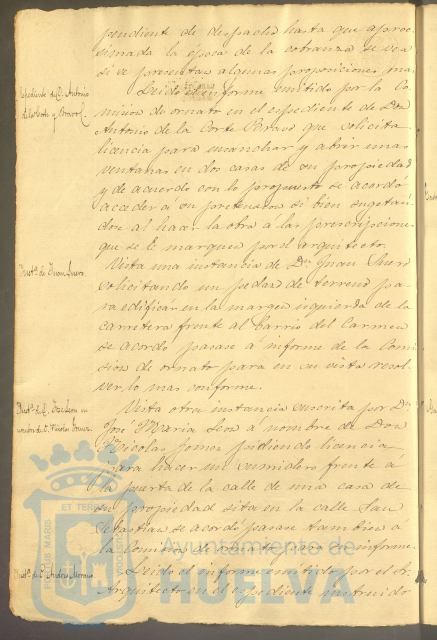 pendiente de despacho hasta que aprocsimada la epoca de la cobranza se vea
si se presentan algunas proposiciones mas
Espediente de D. Antonio
de la Corte y Bravo
Leido el informe emitido por la Comision de ornato en el espediente de Don
Antonio de la Corte Bravo que solicita
licencia para ensanchar y abrir unas
ventanas en dos casas de su propiedad
y de acuerdo con lo propuesto se acordó
acceder á su pretension si bien sugetandose al hacer la obra á las prescripciones
que se le marquen por el arquitecto.
Inst.ª de Juan Suero
Vista una instancia de D.n Juan Suero
solicitando un pedazo de terreno para edificar en la margen izquierda de la
carretera frente al barrio del Carmen
se acordo pasase á informe de la Comision de ornato para en su vista resolver lo mas conforme.
Inst.ª de D. José Leon en
nombre de D. Nicolas Gomez
Vista otra instancia suscrita por D.n
José Maria Leon a nombre de Don
Nicolas Gomez pidiendo licencia
para hacer un sumidero frente á
la puerta de la calle de una casa de
su propiedad sita en la calle San
Sebastian se acordó pasase tambien á
la Comision de ornato para su informe.
Inst.ª de D. Andres Moreno
Leido el informe emitido por el Sr.
Arquitecto en el espediente instruido
PORTUS MARIS
ET TERRAE
CUSTODIA
Ayuntamiento de
HUELVA